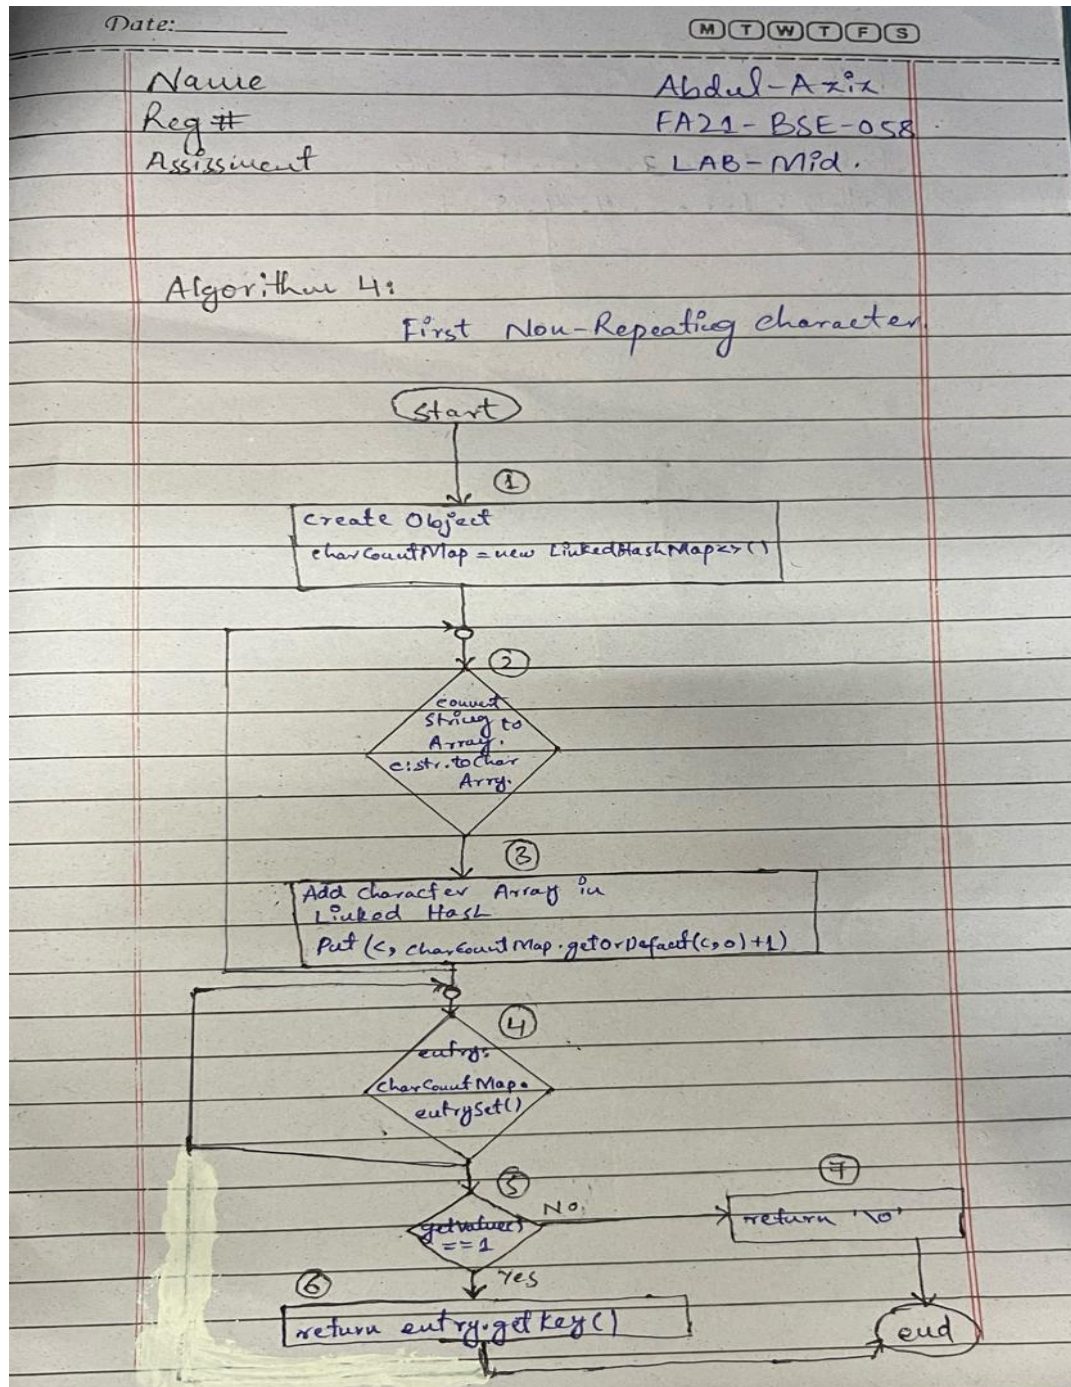 Date:
M T W T F S
Name Abdul-Aziz
Reg # FA21-BSE-058
Assissment LAB-Mid.
Algorithm 4:
First Non-Repeating character
Start
1
create Object
charCountMap = new LinkedHashMap<>()
2
convert
String to
Array.
c:str.toChar
Arry.
3
Add character Array in
Linked Hash
Put (c, charCountMap.getOrDefault(c,0)+1)
4
entry:
charCountMap.
entrySet()
5
No
getvalue()
==1
Yes
7
return '\0'
6
return entry.getkey()
end